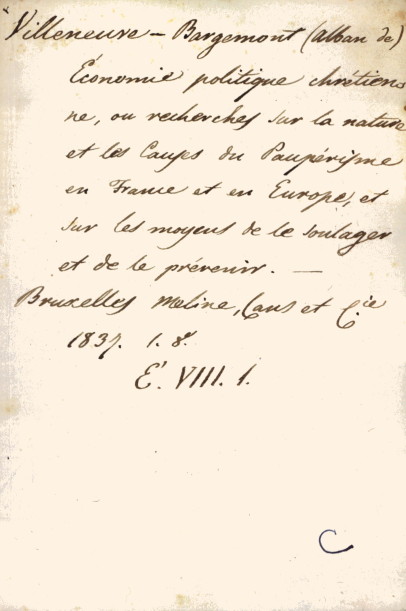 Villeneuve – Bargemont (Alban de)
Économie politique chrétien
ne, ou recherches sur la nature
et les Causes du Paupérisme
en France et en Europe, et
sur les moyens de le soulager
et de le prévenir. —
Bruxelles Meline, Cans et Cie
1837. 1. 8º
É. VIII. 1.
C